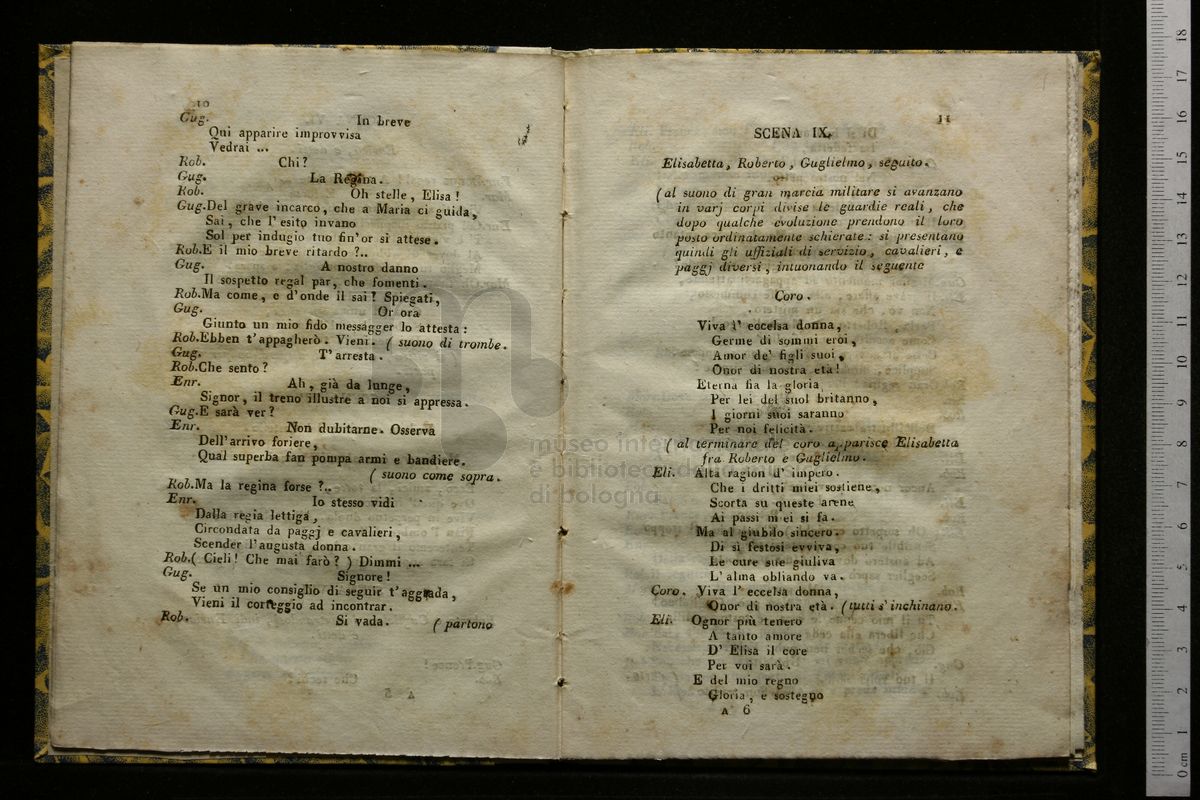 10
Gug. In breve
Qui apparire improvvisa
Vedrai ...
Rob. Chi?
Gug. La Regina.
Rob. Oh stelle, Elisa!
Gug. Del grave incarco, che a Maria ci guida,
Sai, che l'esito invano
Sol per indugio tuo fin'or si attese.
Rob. E il mio breve ritardo?..
Gug. A nostro danno
Il sospetto regal par, che fomenti.
Rob. Ma come, e d'onde il sai? Spiegati,
Gug. Or ora
Giunto un mio fido messagger lo attesta:
Rob. Ebben t'appagherò. Vieni. (suono di trombe.
Gug. T'arresta.
Rob. Che sento?
Enr. Ah, già da lunge,
Signor, il treno illustre a noi si appressa.
Gug. E sarà ver?
Enr. Non dubitarne. Osserva
Dell'arrivo foriere,
Qual superba fan pompa armi e bandiere.
(suono come sopra.
Rob. Ma la regina forse?..
Enr. Io stesso vidi
Dalla regia lettiga,
Circondata da paggj e cavalieri,
Scender l'augusta donna.
Rob. (Cieli! Che mai farò?) Dimmi ...
Gug. Signore!
Se un mio consiglio di seguir t'aggrada,
Vieni il corteggio ad incontrar.
Rob. Si vada. (partono
A 5
11
SCENA IX.
Elisabetta, Roberto, Guglielmo, seguito.
(al suono di gran marcia militare si avanzano
in varj corpi divise le guardie reali, che
dopo qualche evoluzione prendono il loro
posto ordinatamente schierate: si presentano
quindi gli uffiziali di servizio, cavalieri, e
paggj diversi, intuonando il seguente
Coro.
Viva l'eccelsa donna,
Germe di sommi eroi,
Amor de' figli suoi,
Onor di nostra età!
Eterna fia la gloria
Per lei del suol britanno,
I giorni suoi saranno
Per noi felicità.
(al terminare del coro apparisce Elisabetta
fra Roberto e Guglielmo.
Eli. Alta ragion d'impero.
Che i dritti miei sostiene,
Scorta su queste arene
Ai passi miei si fa.
Ma al giubilo sincero.
Di sì festosi evviva,
Le cure sue giuliva
L'alma obliando va.
Coro. Viva l'eccelsa donna,
Onor di nostra età. (tutti s'inchinano.
Eli. Ognor più tenero
A tanto amore
D'Elisa il core
Per voi sarà.
E del mio regno
Gloria, e sostegno
A 6